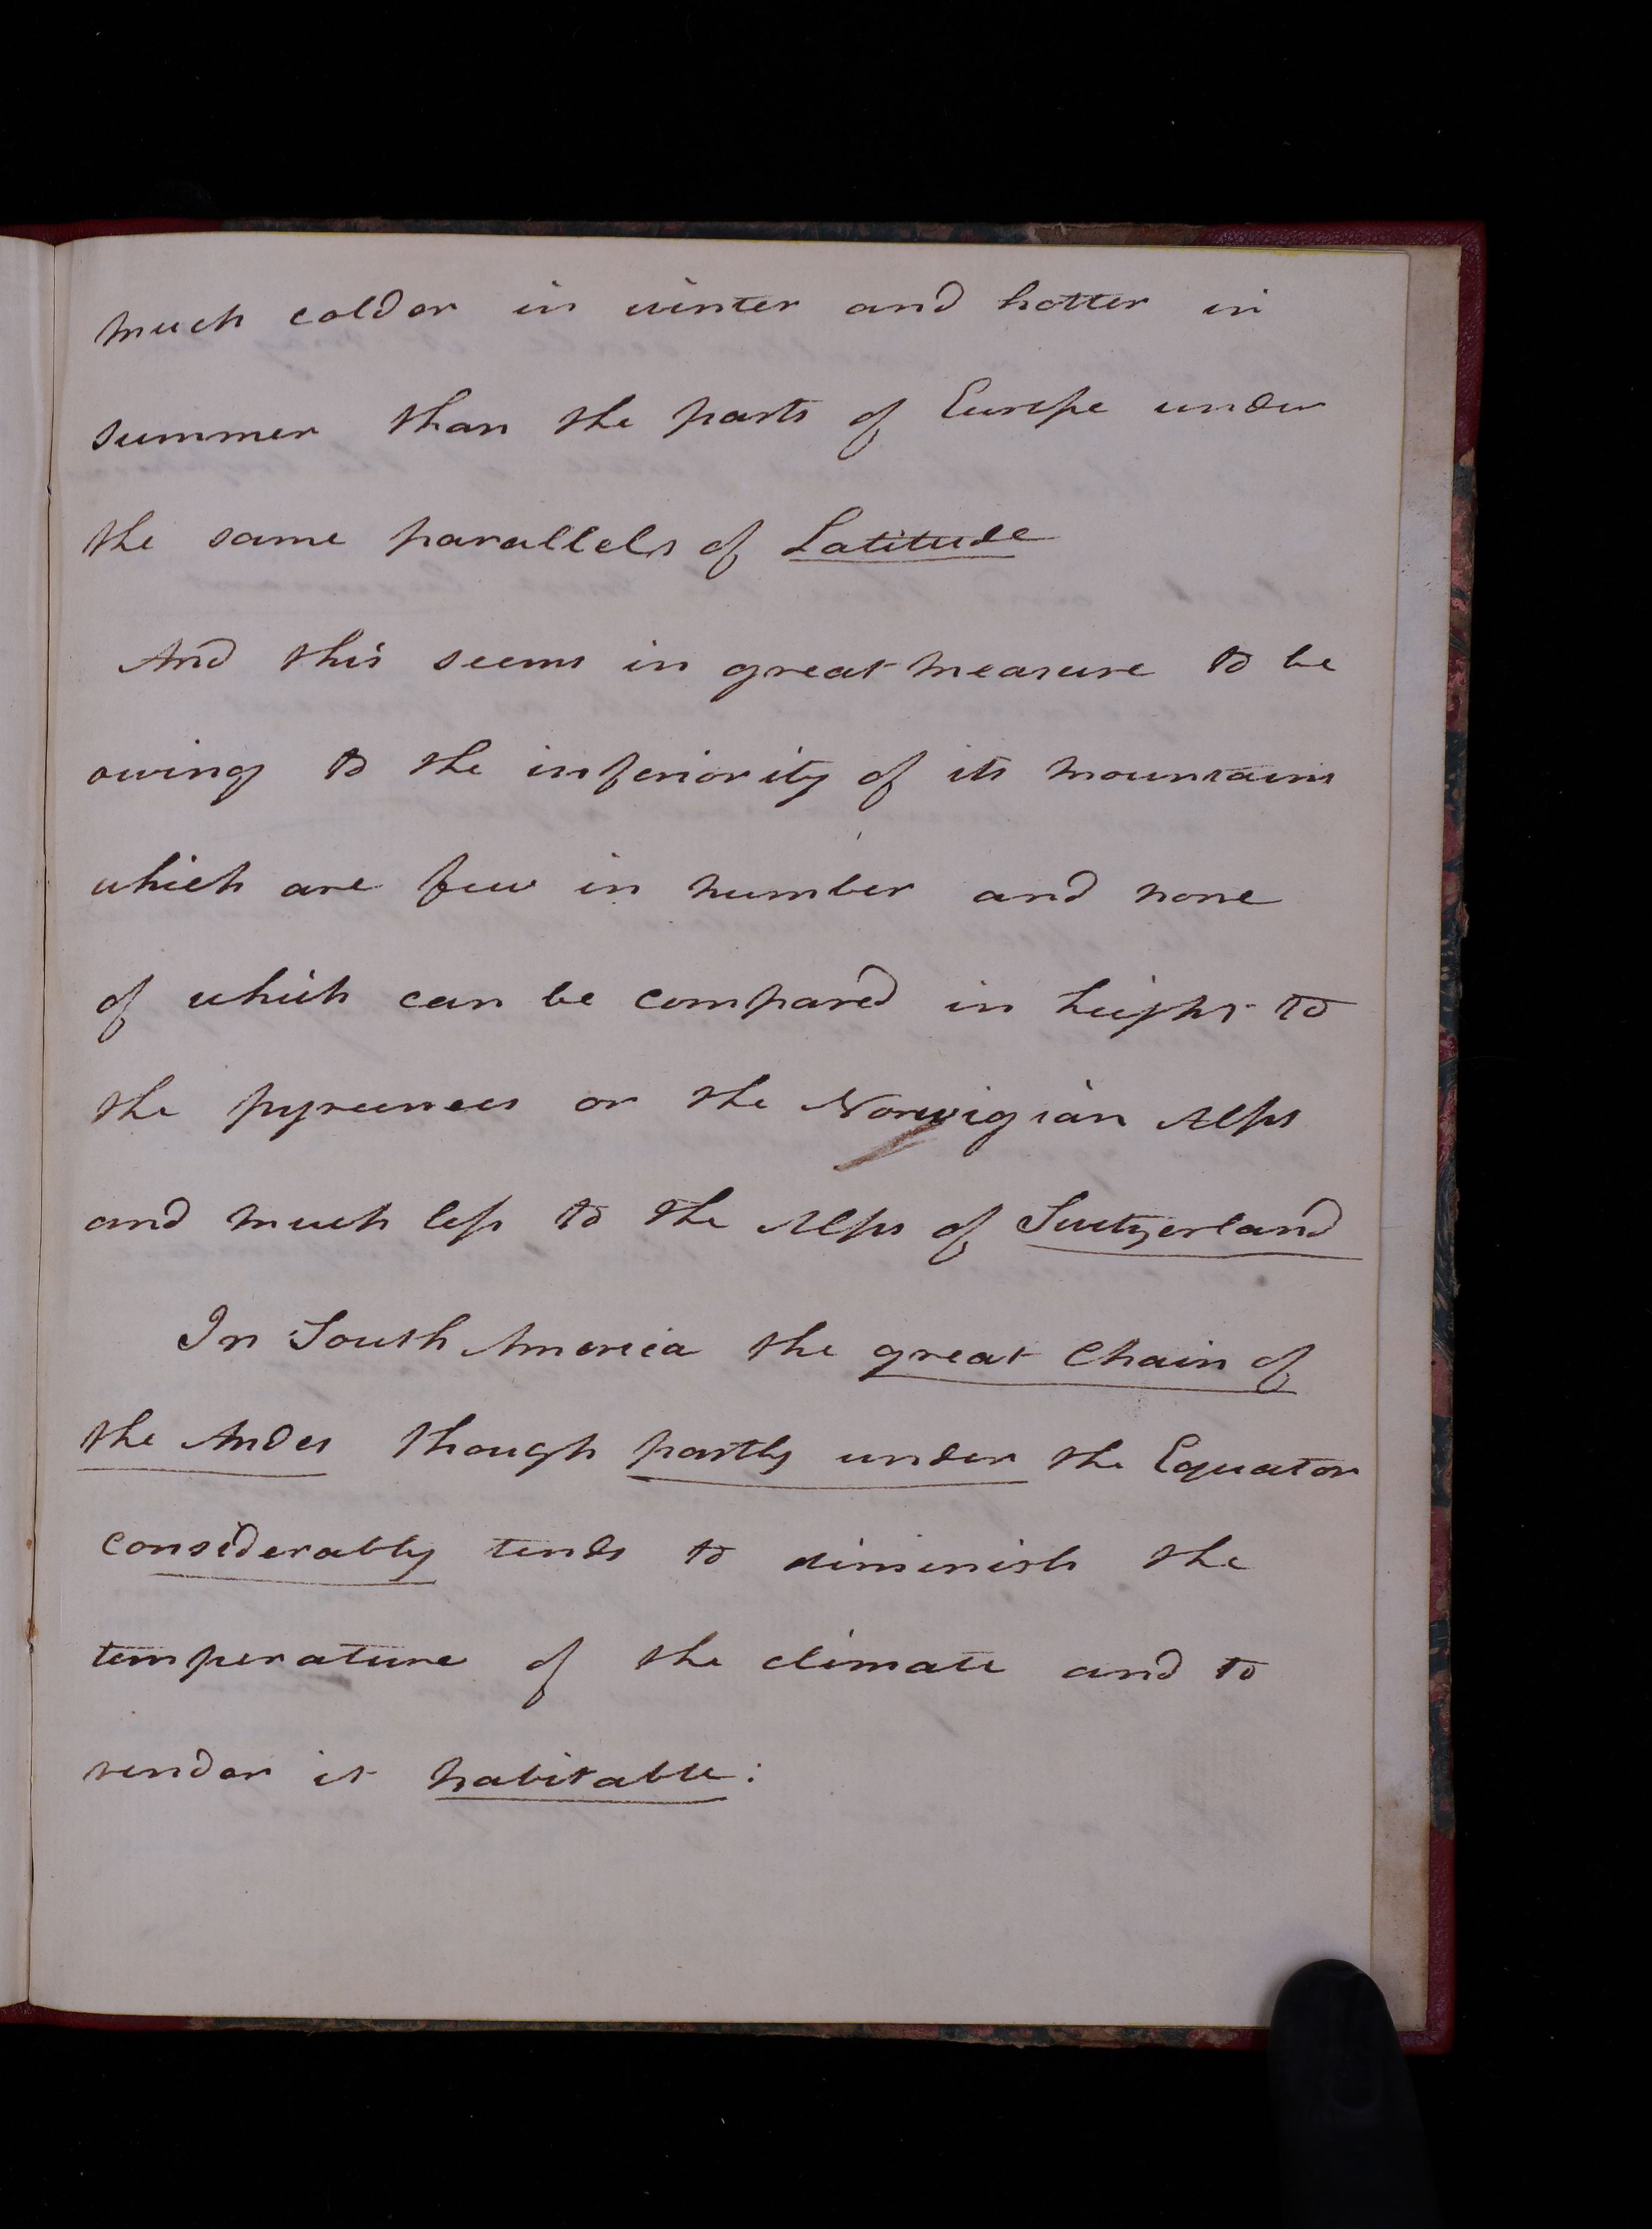 much colder in winter and hotter in
summer than the parts of Europe under
the same parallels of Latitude
And this seems in great measure to be
owing to the inferiority of its mountains
which are few in number and none
of which can be compared in height to
the pyreenees or the Norwigian Alps
and much less to the Alps of Switzerland
In South America the great Chain of
the Andes though partly under the Equator
considerably tends to diminish the
temperature of the climate and to
render it habitable: